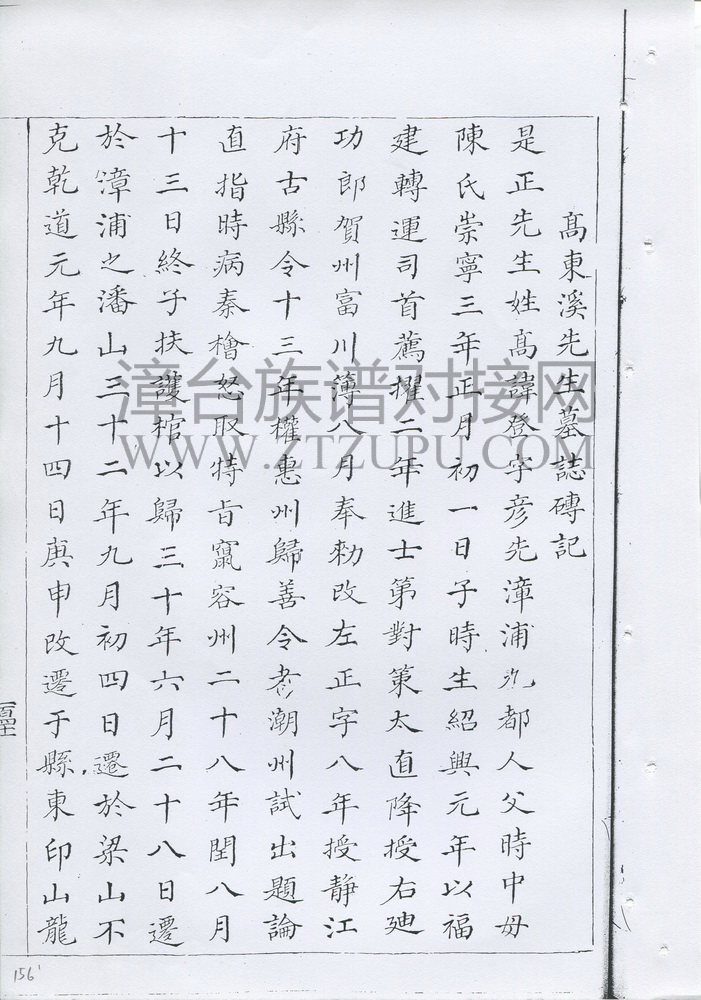 高東溪先生墓誌磚記
是正先生姓髙諱登字彦先漳浦九都人父時中母
陳氏崇寧三年正月初一日子時生紹興元年以福
建轉運司首薦擢二年進士第對策太直降授右廸
功郎賀州富川簿八月奉勑改左正字八年授靜江
府古縣令十三年權惠州歸善令考潮州試出題論
直指時病秦檜怒取特旨竄容州二十八年閏八月
十三日終子扶護棺以歸三十年六月二十八日遷
於漳浦之潘山三十二年九月初四日遷於梁山不
克乾道元年九月十四日庚申改遷于縣東印山龍
漳台族谱对接网
WWW.ZTZUPU.COM
156